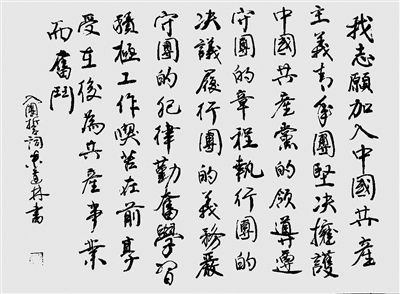 我志願加入中國共產
主義青年團堅决擁護
中國共產黨的領導遵
守團的章程執行團的
决議履行團的義務嚴
守團的紀律勤奮學習
積極工作喫苦在前享
受在後為共產事業
而奮鬥
入團誓詞 林書